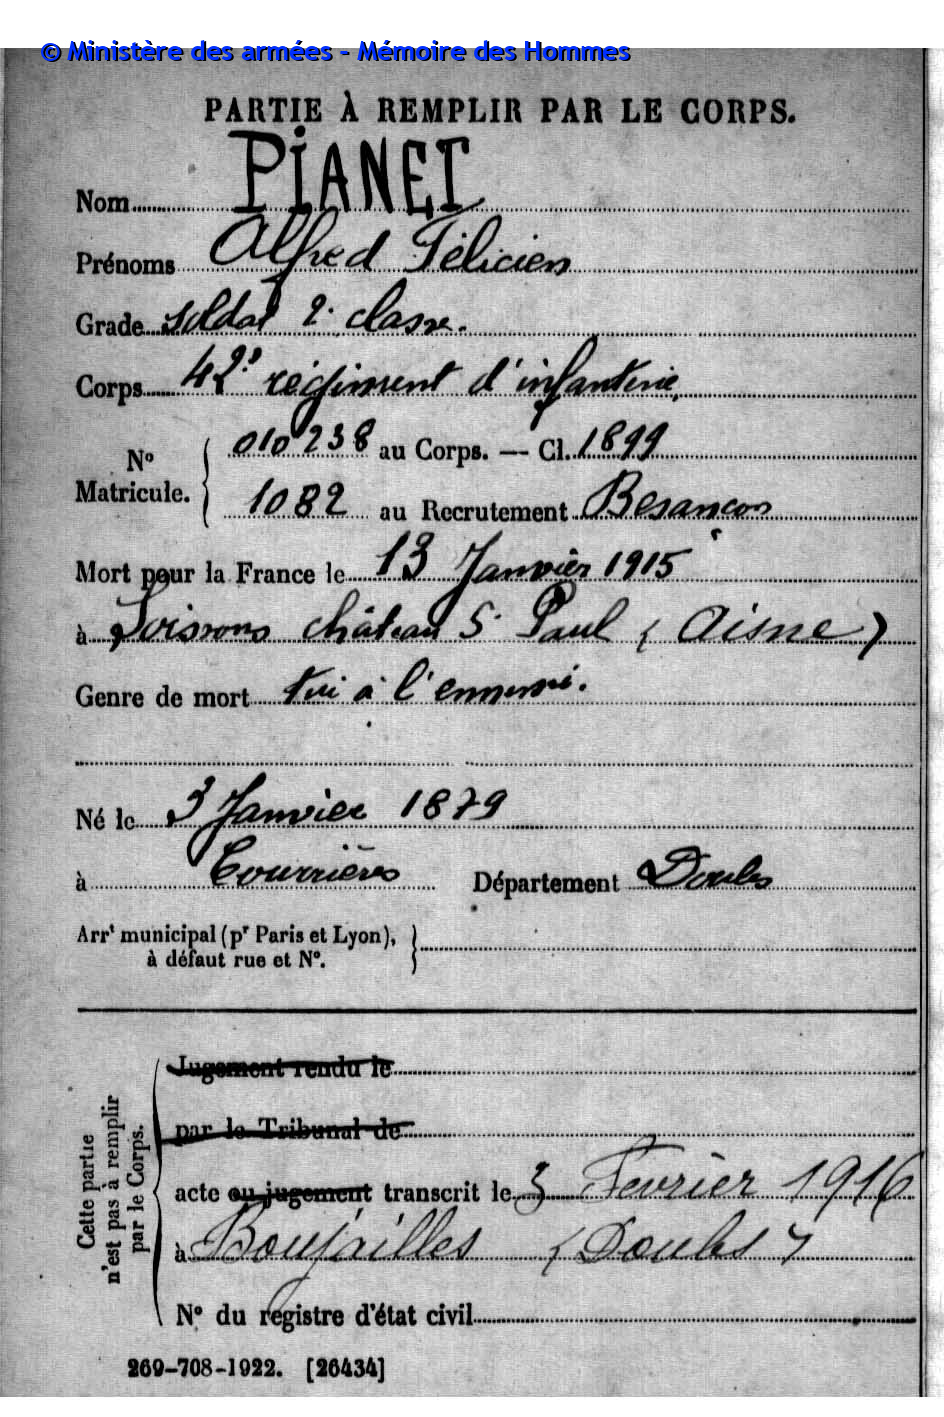 © Ministère des armées - Mémoire des Hommes
PARTIE À REMPLIR PAR LE CORPS.
Nom PIANET
Prénoms Alfred Félicien
Grade soldat 2e classe.
Corps 42e régiment d'infanterie.
No Matricule. { 010238 au Corps. — Cl. 1899
1082 au Recrutement Besançon
Mort pour la France le 13 Janvier 1915
à Soissons château St Paul (Aisne)
Genre de mort tué à l'ennemi.
Né le 3 Janvier 1879
à Courrières Département Doubs
Arrt municipal (pr Paris et Lyon), }
à défaut rue et No.
Cette partie
n'est pas à remplir
par le Corps.
Jugement rendu le
par le Tribunal de
acte ou jugement transcrit le 3 Fevrier 1916
à Boujailles (Doubs)
No du registre d'état civil
269-708-1922. [26434]